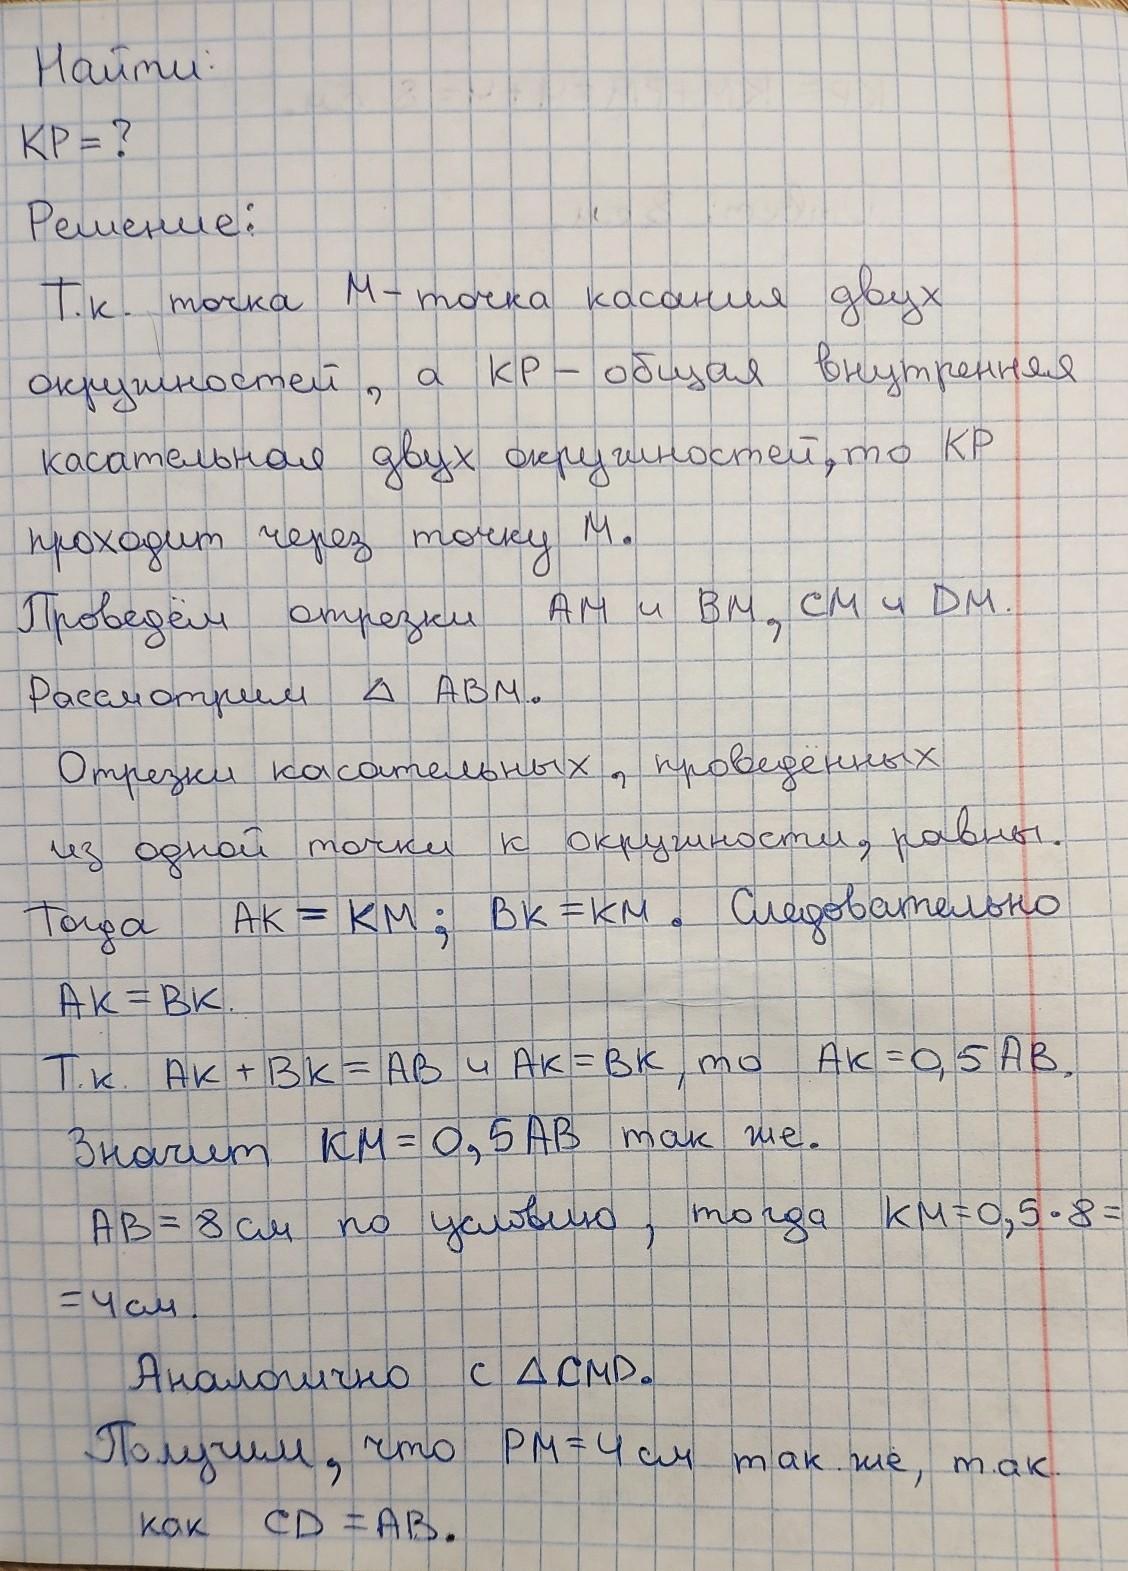 Найти:
КР = ?
Решение:
Т.к. точка М - точка касания двух
окружностей, а КР - общая внутренняя
касательная двух окружностей, то КР
проходит через точку М.
Проведём отрезки АМ и ВМ, СМ и DM.
Рассмотрим Δ АВМ.
Отрезки касательных, проведённых
из одной точки к окружности, равны.
Тогда АК = КМ; ВК = КМ. Следовательно
АК = ВК.
Т.к. АК + ВК = АВ и АК = ВК, то АК = 0,5 АВ.
Значит КМ = 0,5 АВ так же.
АВ = 8 см по условию, тогда КМ = 0,5 · 8 =
= 4 см.
Аналогично с Δ CMD.
Получим, что РМ = 4 см так же, так
как CD = AB.